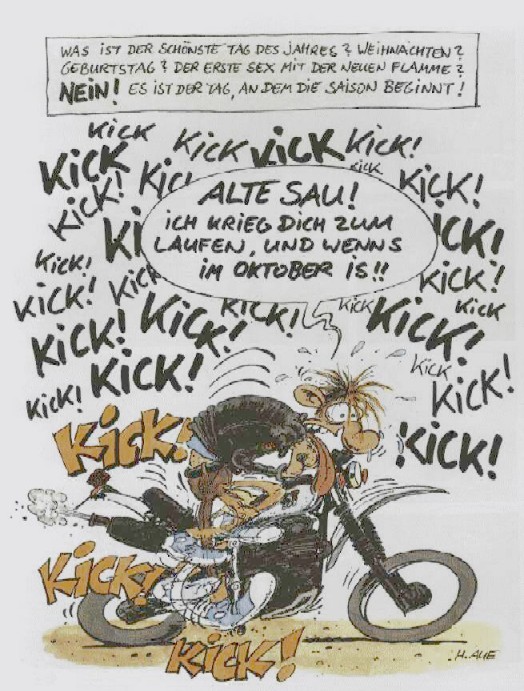 WAS IST DER SCHÖNSTE TAG DES JAHRES? WEIHNACHTEN?
GEBURTSTAG? DER ERSTE SEX MIT DER NEUEN FLAMME?
NEIN! ES IST DER TAG, AN DEM DIE SAISON BEGINNT!
KICK
KICK KICK KICK KICK!
KICK
KICK! KICK! KICK!
ALTE SAU!
ICH KRIEG DICH ZUM
LAUFEN, UND WENNS
IM OKTOBER IS!!
KICK!
KICK! KICK!
KICK! KICK! KICK KICK
KICK! KICK! KICK!
KICK! KICK! KICK
KICK!
KICK!
KICK!
KICK!
KICK!
H. AUE